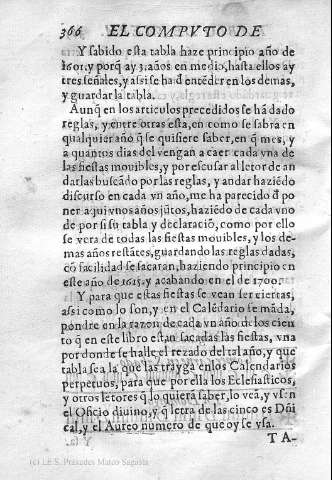 366 EL COMPVTO DE
Y sabido esta tabla haze principio año de
1601. y porq̃ ay 3. años en medio, hasta ellos ay
tres señales, y assi se hã d̃ entẽder en los demas,
y guardar la tabla.
Aunq̃ en los articulos precedidos se hã dado
reglas, y entre otras esta, en como se sabra en
qualquier año q̃ se quisiere saber, en q̃ mes, y
a quantos dias del vengan a caer cada vna de
las fiestas mouibles, y por escusar al letor de an
darlas buscãdo por las reglas, y andar haziẽdo
discurso en cada vn año, me ha parecido d̃ po
ner aqui vnos años jũtos, haziẽdo de cada vno
de por si su tabla y declaraciõ, como por ello
se vera de todas las fiestas mouibles, y los de-
mas años restãtes, guardando las reglas dadas,
cõ facilidad se sacaran, haziendo principio en
este año de 1615. y acabando en el de 1700.
Y para que estas fiestas se vean ser ciertas,
assi como lo son, y en el Calẽdario se mãda,
pondre en la razon de cada vn año de los cien
to q̃ en este libro estan sacadas las fiestas, vna
por donde se halle el rezado del tal año, y que
tabla sea la que las trayga en los Calendarios
perpetuos, para que por ella los Eclesiasticos,
y otros letores q̃ lo quiera saber, lo vea, y vsen
el Oficio diuino, y q̃ letra de las cinco es Dñi
cal, y el Aureo numero de que oy se vsa.
T A-
(c) I.E.S. Práxedes Mateo Sagasta